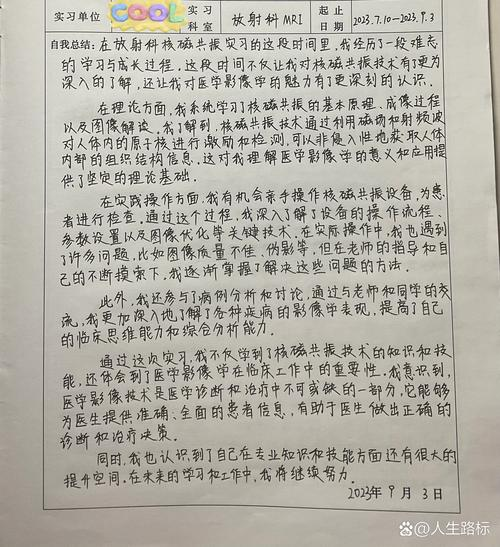 实习单位 COOL 实习科室 放射科MRI 起止日期 2023.7.10-2023.9.3
自我总结:在放射科核磁共振实习的这段时间里,我经历了一段难忘
的学习与成长过程。这段时间不仅让我对核磁共振技术有了更为
深入的了解,还让我对医学影像学的魅力有了更深刻的认识。
在理论方面,我系统学习了核磁共振的基本原理、成像过程
以及图像解读。我了解到,核磁共振技术通过利用磁场和射频波
对人体内的原子核进行激励和检测,可以非侵入性地获取人体
内部的组织结构信息。这对我理解医学影像学的意义和应用提
供了坚定的理论基础。
在实践操作方面,我有机会亲手操作核磁共振设备,为患
者进行检查。通过这个过程,我深入了解了设备的操作流程、
参数设置以及图像优化等关键技术。在实际操作中,我也遇到
了许多问题,比如图像质量不佳、伪影等,但在老师的指导和自
己的不断摸索下,我逐渐掌握了解决这些问题的方法。
此外,我还参与了病例分析和讨论,通过与老师和同学的交
流,我更加深入地了解了各种疾病的影像学表现,提高了自己
的临床思维能力和综合分析能力。
通过这次实习,我不仅学到了核磁共振技术的知识和技
能,还体会到了医学影像学在临床工作中的重要性。我意识到,
医学影像技术是医学诊断和治疗中不可或缺的一部分,它能够
为医生提供准确、全面的患者信息,有助于医生做出正确的
诊断和治疗决策。
同时,我也认识到了自己在专业知识和技能方面还有很大的
提升空间。在未来的学习和工作中,我将继续努力。
2023年9月3日
@人生路标